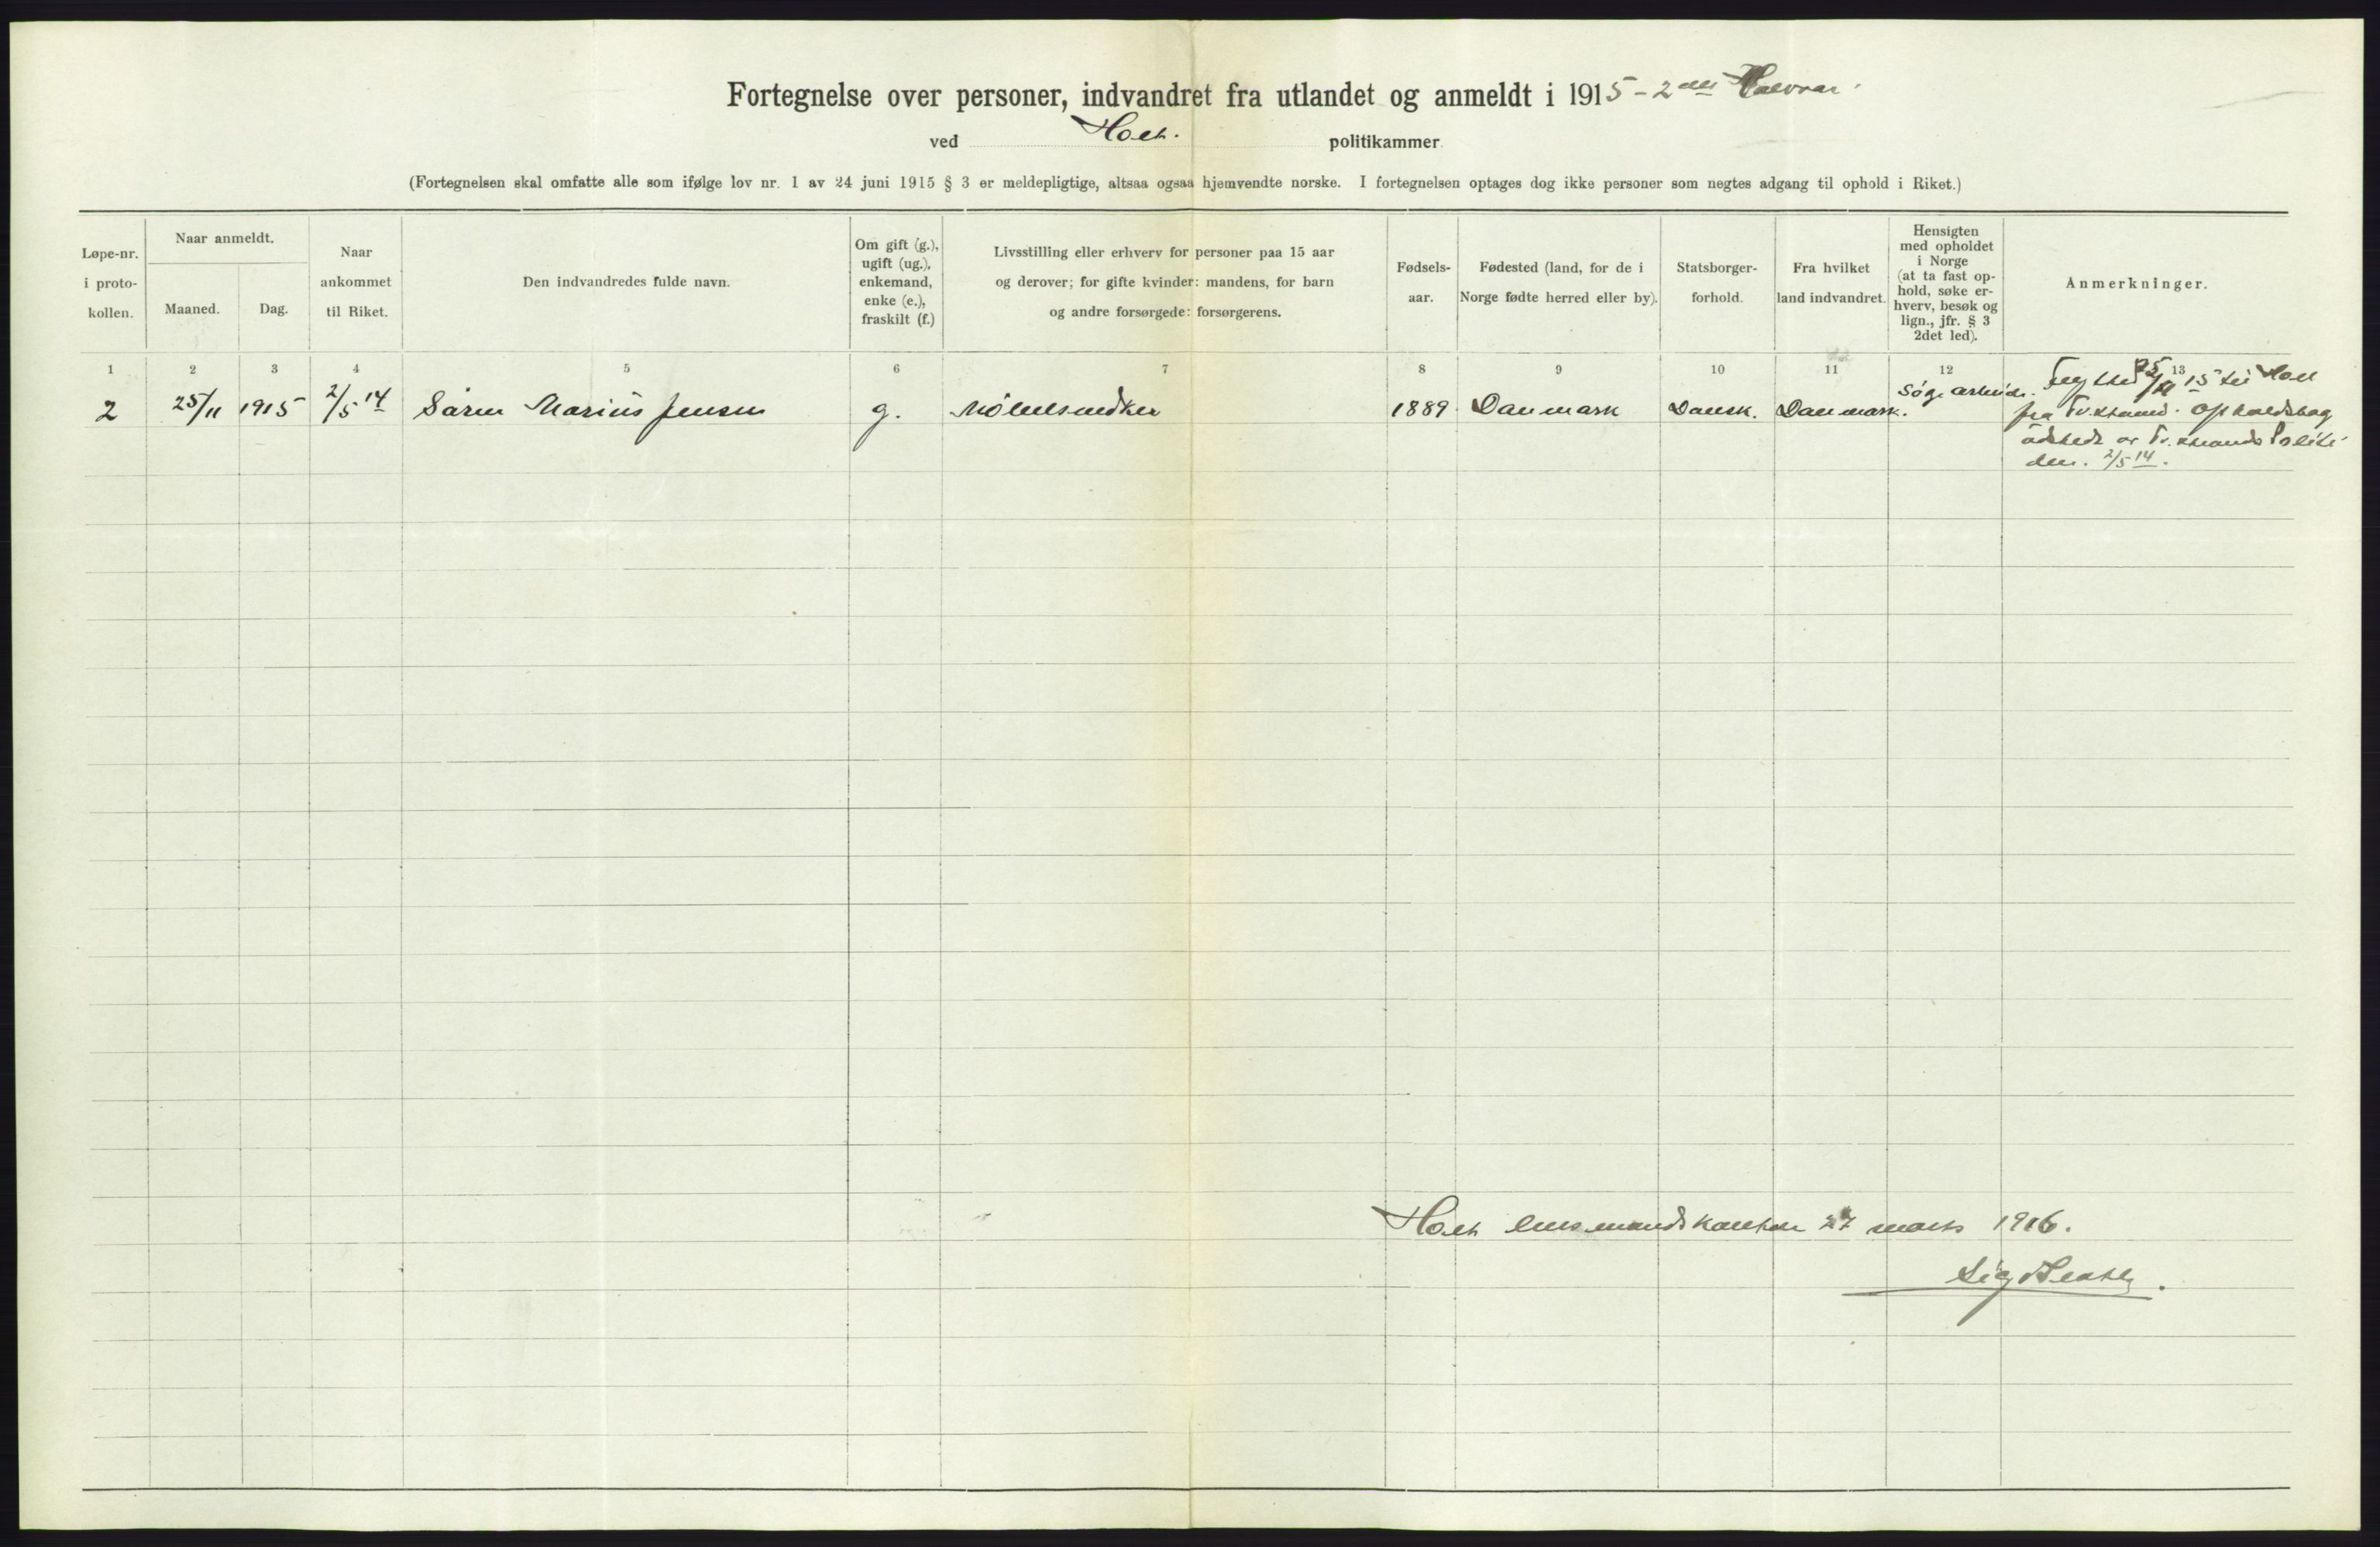 Fortegnelse over personer, indvandret fra utlandet og anmeldt i 1915 - 2det Halvaar.
ved Holt. politikammer.
(Fortegnelsen skal omfatte alle som ifølge lov nr. 1 av 24 juni 1915 § 3 er meldepligtige, altsaa ogsaa hjemvendte norske. I fortegnelsen optages dog ikke personer som negtes adgang til ophold i Riket.)
Løpe-nr.
i proto-
kollen.
Naar anmeldt.
Maaned.
Dag.
Naar
ankommet
til Riket.
Den indvandredes fulde navn.
Om gift (g.),
ugift (ug.),
enkemand,
enke (e.),
fraskilt (f.)
Livsstilling eller erhverv for personer paa 15 aar
og derover; for gifte kvinder: mandens, for barn
og andre forsørgede: forsørgerens.
Fødsels-
aar.
Fødested (land, for de i
Norge fødte herred eller by).
Statsborger-
forhold.
Fra hvilket
land indvandret.
Hensigten
med opholdet
i Norge
(at ta fast op-
hold, søke er-
hverv, besøk og
lign., jfr. § 3
2det led).
Anmerkninger.
1 2 3 4 5 6 7 8 9 10 11 12 13
2 25/11 1915 2/5 14 Sören Marius Jensen g. Möllesnedker 1889 Danmark Dansk. Danmark. Søge arbeide.
Flyttet 25/11 15 til Holt
fra Tv.strand. Opholdsbog
udstedt av Tv.strands Politi
den. 2/5 14.
Holt lensmandskontor 27 marts 1916.
Sig